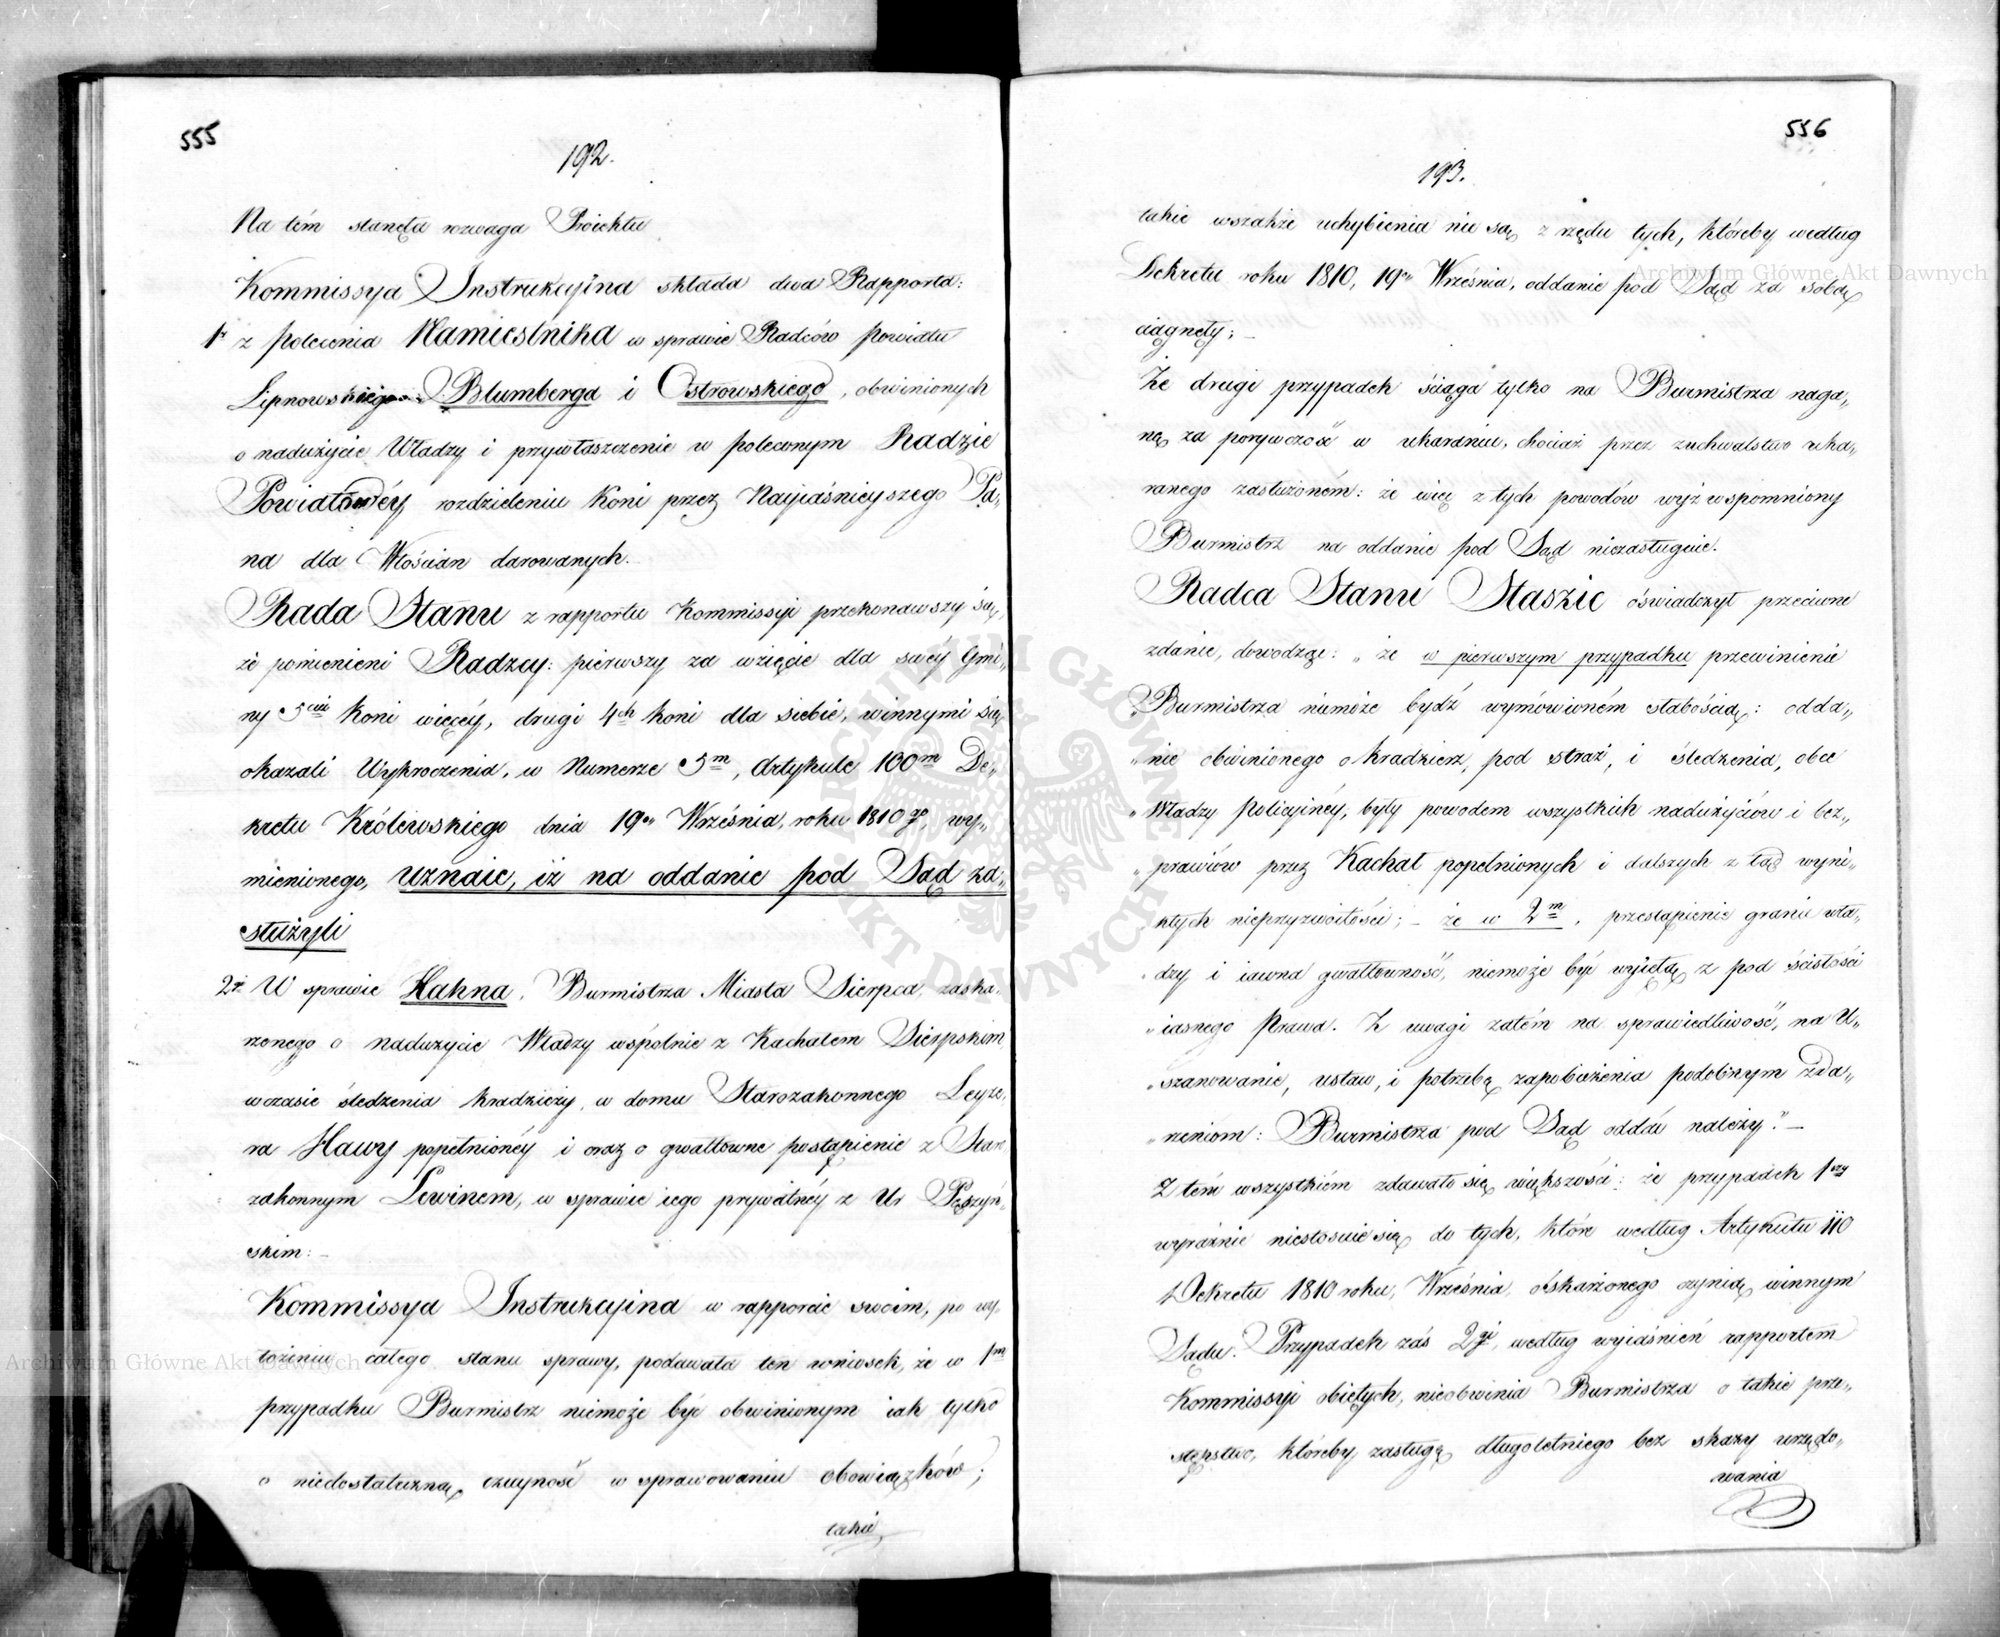 555
192.
Na tém stanęła rozwaga Proiektu
Kommissya Instrukcyina składa dwa Rapporta:
1r z polecenia Namiestnika w sprawie Radców Powiatu
Lipnowskiego: Blumberga i Ostrowskiego, obwinionych
o nadużycie Władzy i przywłaszczenie w poleconym Radzie
Powiatowéy rozdzieleniu koni przez Nayiaśnieyszego Pa„
na dla Włościan darowanych.
Rada Stanu z rapportu Kommissyi przekonawszy się,
że pomienieni Radzcy: pierwszy za wzięcie dla swéy Gmi„
ny 5ciu koni więcéy, drugi 4ch koni dla siebie, winnymi się
okazali Wykroczenia, w Numerze 5m, Artykule 100m De„
kretu Królewskiego dnia 19go Września, roku 1810go, wy„
mienionego, uznaie, iż na oddanie pod Sąd za„
służyli
2re W sprawie Hahna, Burmistrza Miasta Sierpca, zaska„
rzonego o nadużycie Władzy wspólnie z Kachałem Sierpskim
wczasie śledzenia kradzieży, w domu Starozakonnego Leyze„
ra Hawy popełnionéy i oraz o gwałtowne postąpienie z Staro
zakonnym Lewinem, w sprawie iego prywatnéy z Ur
skim: –
Kommissya Instrukcyina w rapporcie swoim, po wy„
łożeniu całego stanu sprawy, podawała ten wniosek, że w 1m
przypadku Burmistrz niemoże być obwinionym iak tylko
o niedostateczną czuyność w sprawowaniu obowiązków;
takie
556
193.
takie wszakże uchybienia nie są z rzędu tych, któreby według
Dekretu roku 1810, 19go Września, oddanie pod Sąd za sobą
ciągnęły; –
Że drugi przypadek ściąga tylko na Burmistrza naga„
nę za porywczość w ukaraniu, chociaż przez zuchwalstwo uka„
ranego zasłużoném: że więc z tych powodów wyż wspomniony
Burmistrz na oddanie pod Sąd niezasługuie.
Radca Stanu Staszic oświadczył przeciwne
zdanie, dowodząc: „że w pierwszym przypadku przewinienie
„Burmistrza niemoże bydź wymówioném słabością: odda„
„nie obwinionego o kradzież, pod straż, i śledzenia, obce
„Władzy Policyinéy, były powodem wszystkich nadużyciów i bez„
„prawiów przez Kachał popełnionych i dalszych z tąd wyni„
„kłych nieprzyzwoitości; – że w 2m, przestąpienie granic wła„
„dzy i iawna gwałtowność, niemoże być wyiętą z pod ścisłości
„iasnego Prawa. Z uwagi zatém na sprawiedliwość, na U„
„szanowanie, ustaw, i potrzebę zapobieżenia podobnym Zda„
„rzeniom: Burmistrza pod Sąd oddać należy." –
Z tém wszystkiém zdawało się większości: że przypadek 1szy
wyraźnie niestosuie się do tych, które według Artykułu 110
Dekretu 1810 roku, Września, oskarżonego czynią winnym
Sądu. Przypadek zaś 2gi, według wyiaśnień rapportem
Kommissyi obiętych, nieobwinia Burmistrza o takie prze„
stępstwo, któreby zasługę długoletniego bez skazy urzędo„
wania
Archiwum Główne Akt Dawnych
Archiwum Główne Akt Dawnych
ARCHIWUM GŁÓWNE AKT DAWNYCH